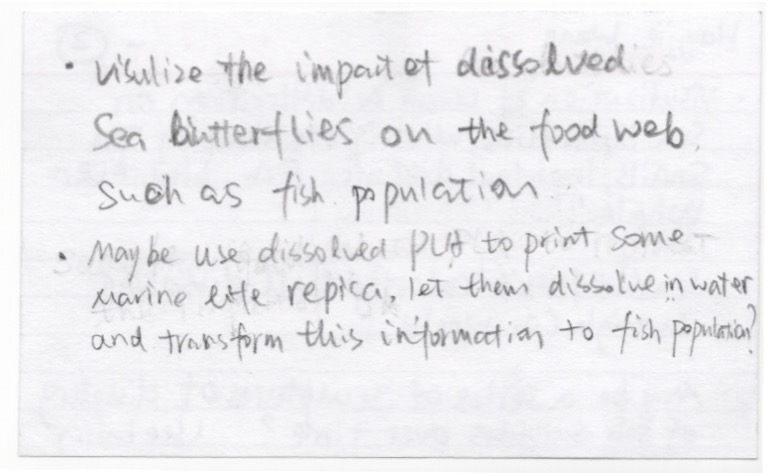 • Visulize the impact of dissolved
Sea butterflies on the food web.
such as fish population.
• Maybe use dissolved PLA to print some
marine life repica, let them dissolve in water
and transform this information to fish population?